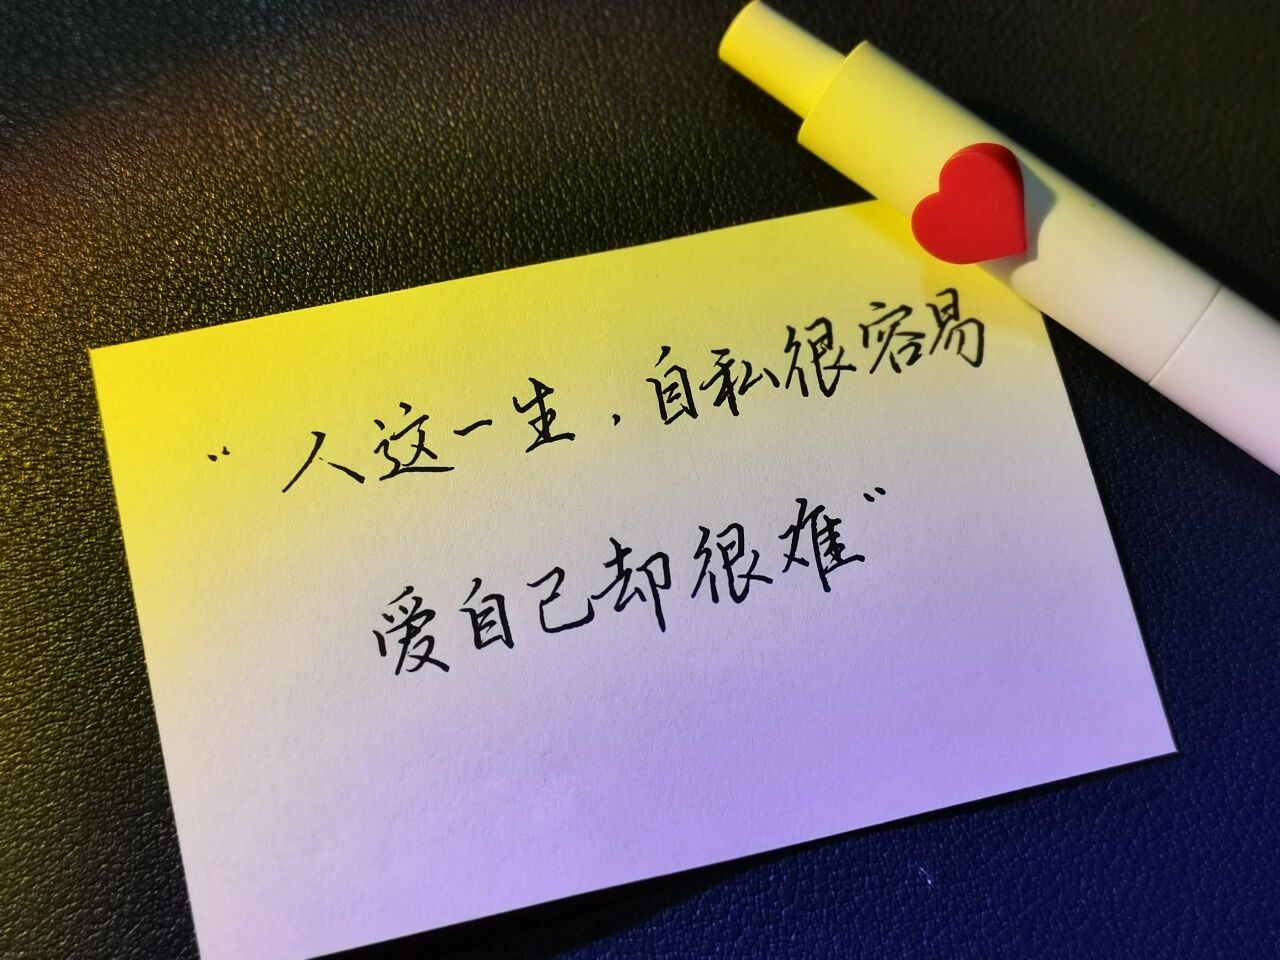 “人这一生，自私很容易
爱自己却很难”